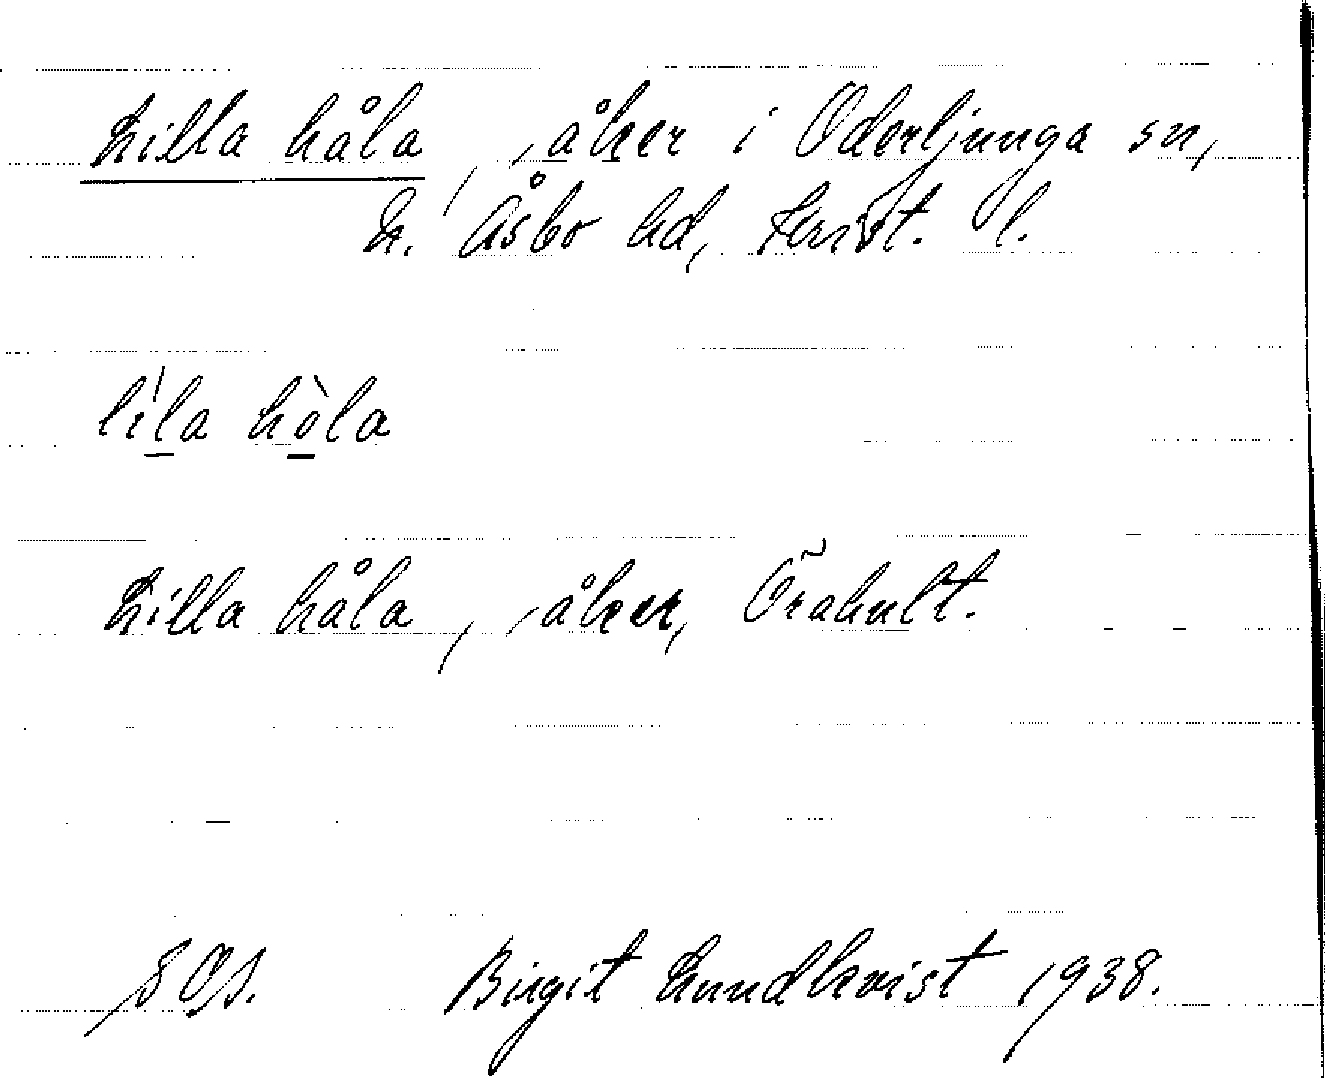 Lilla håla, åker i Oderljunga sn,
N. Åsbo hd, Krist. l.
lila hòla
Lilla håla, åker, Örahult.
Birgit Lundkvist 1938.